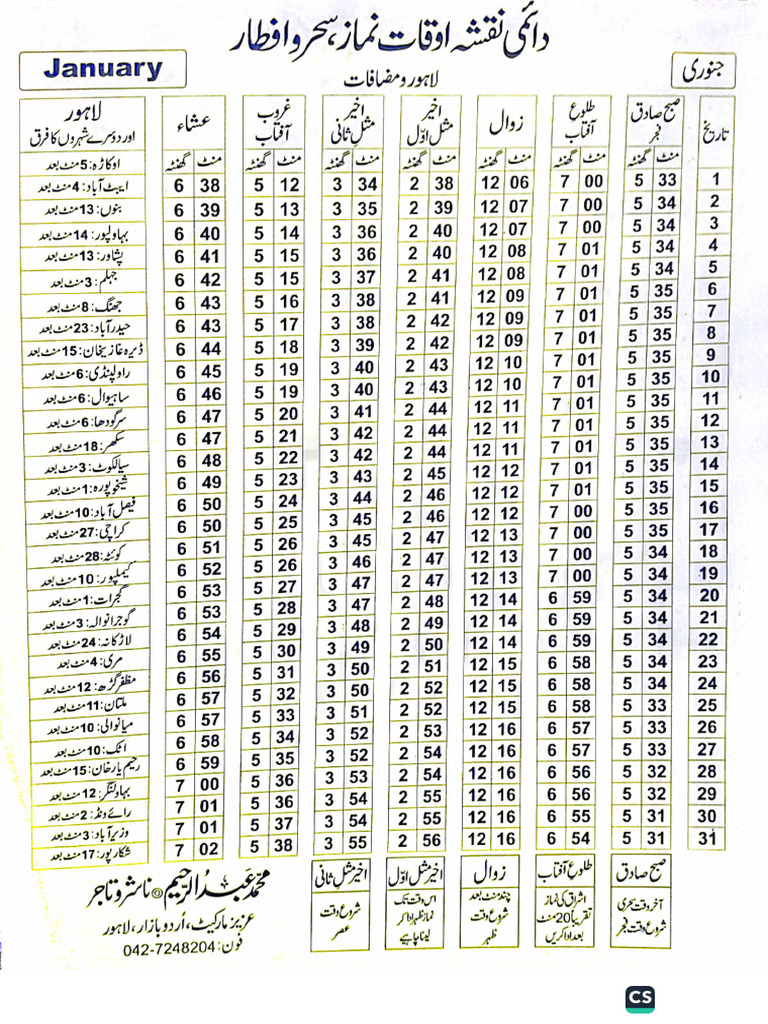 دائمی نقشہ اوقات نماز، سحر و افطار
جنوری
لاہور و مضافات
January
تاریخ | صبح صادق فجر | طلوع آفتاب | زوال | اخیر مثل اوّل | اخیر مثل ثانی | غروب آفتاب | عشاء | لاہور اور دوسرے شہروں کا فرق
منٹ گھنٹہ | منٹ گھنٹہ | منٹ گھنٹہ | منٹ گھنٹہ | منٹ گھنٹہ | منٹ گھنٹہ | منٹ گھنٹہ | اوکاڑہ: 5 منٹ بعد
1 | 5 33 | 7 00 | 12 06 | 2 38 | 3 34 | 5 12 | 6 38 | ایبٹ آباد: 4 منٹ بعد
2 | 5 34 | 7 00 | 12 07 | 2 39 | 3 35 | 5 13 | 6 39 | بنوں: 13 منٹ بعد
3 | 5 34 | 7 00 | 12 07 | 2 40 | 3 36 | 5 14 | 6 40 | بہاولپور: 14 منٹ بعد
4 | 5 34 | 7 01 | 12 08 | 2 40 | 3 36 | 5 15 | 6 41 | پشاور: 13 منٹ بعد
5 | 5 34 | 7 01 | 12 08 | 2 41 | 3 37 | 5 15 | 6 42 | جہلم: 3 منٹ بعد
6 | 5 35 | 7 01 | 12 09 | 2 41 | 3 38 | 5 16 | 6 43 | جھنگ: 8 منٹ بعد
7 | 5 35 | 7 01 | 12 09 | 2 42 | 3 38 | 5 17 | 6 43 | حیدرآباد: 23 منٹ بعد
8 | 5 35 | 7 01 | 12 09 | 2 42 | 3 39 | 5 18 | 6 44 | ڈیرہ غازیخان: 15 منٹ بعد
9 | 5 35 | 7 01 | 12 10 | 2 43 | 3 40 | 5 19 | 6 45 | راولپنڈی: 6 منٹ بعد
10 | 5 35 | 7 01 | 12 10 | 2 43 | 3 40 | 5 19 | 6 46 | ساہیوال: 6 منٹ بعد
11 | 5 35 | 7 01 | 12 11 | 2 44 | 3 41 | 5 20 | 6 47 | سرگودھا: 6 منٹ بعد
12 | 5 35 | 7 01 | 12 11 | 2 44 | 3 42 | 5 21 | 6 47 | سکھر: 18 منٹ بعد
13 | 5 35 | 7 01 | 12 11 | 2 44 | 3 42 | 5 22 | 6 48 | سیالکوٹ: 3 منٹ بعد
14 | 5 35 | 7 01 | 12 12 | 2 45 | 3 43 | 5 23 | 6 49 | شیخوپورہ: 1 منٹ بعد
15 | 5 35 | 7 01 | 12 12 | 2 46 | 3 44 | 5 24 | 6 50 | فیصل آباد: 10 منٹ بعد
16 | 5 35 | 7 00 | 12 12 | 2 46 | 3 45 | 5 25 | 6 50 | کراچی: 27 منٹ بعد
17 | 5 35 | 7 00 | 12 13 | 2 47 | 3 45 | 5 26 | 6 51 | کوئٹہ: 28 منٹ بعد
18 | 5 34 | 7 00 | 12 13 | 2 47 | 3 46 | 5 26 | 6 52 | کیمبلپور: 10 منٹ بعد
19 | 5 34 | 7 00 | 12 13 | 2 47 | 3 47 | 5 27 | 6 53 | گجرات: 1 منٹ بعد
20 | 5 34 | 6 59 | 12 14 | 2 48 | 3 47 | 5 28 | 6 53 | گوجرانوالہ: 3 منٹ بعد
21 | 5 34 | 6 59 | 12 14 | 2 49 | 3 48 | 5 29 | 6 54 | لاڑکانہ: 24 منٹ بعد
22 | 5 34 | 6 59 | 12 14 | 2 50 | 3 49 | 5 30 | 6 55 | مری: 4 منٹ بعد
23 | 5 34 | 6 58 | 12 15 | 2 51 | 3 50 | 5 31 | 6 56 | مظفرگڑھ: 12 منٹ بعد
24 | 5 34 | 6 58 | 12 15 | 2 52 | 3 50 | 5 32 | 6 57 | ملتان: 11 منٹ بعد
25 | 5 33 | 6 58 | 12 15 | 2 52 | 3 51 | 5 33 | 6 57 | میانوالی: 10 منٹ بعد
26 | 5 33 | 6 57 | 12 16 | 2 53 | 3 52 | 5 34 | 6 58 | اٹک: 10 منٹ بعد
27 | 5 33 | 6 57 | 12 16 | 2 54 | 3 52 | 5 35 | 6 59 | رحیم یارخان: 15 منٹ بعد
28 | 5 32 | 6 56 | 12 16 | 2 54 | 3 53 | 5 36 | 7 00 | بہاولنگر: 12 منٹ بعد
29 | 5 32 | 6 56 | 12 16 | 2 55 | 3 54 | 5 36 | 7 01 | رائے ونڈ: 2 منٹ بعد
30 | 5 31 | 6 55 | 12 16 | 2 55 | 3 54 | 5 37 | 7 01 | وزیرآباد: 3 منٹ بعد
31 | 5 31 | 6 54 | 12 16 | 2 56 | 3 55 | 5 38 | 7 02 | شکارپور: 17 منٹ بعد
صبح صادق
آخر وقت سحری
شروع وقت فجر
طلوع آفتاب
اشراق کی نماز
تقریباً 20 منٹ
بعد ادا کریں
زوال
چند منٹ بعد
شروع وقت
ظہر
اخیر مثل اوّل
اس وقت تک
نماز ظہر ادا کر
لینا چاہیے
اخیر مثل ثانی
شروع وقت
عصر
محمد عبد الرحیم ناشر و تاجر
عزیز مارکیٹ، اُردو بازار، لاہور
فون: 042-7248204
CS